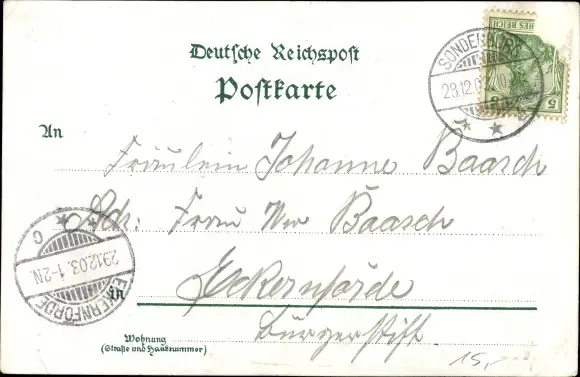 Deutsche Reichspost
Postkarte
SONDERBURG
HES REICH
5
An
Fräulein Johanne Baasch
Adr. Frau Ww Baasch
ECKERNFÖRDE
29.12.03. 1-2N.
C
in
Eckernförde
Bürgerstift
Wohnung
(Straße und Hausnummer)
15,-